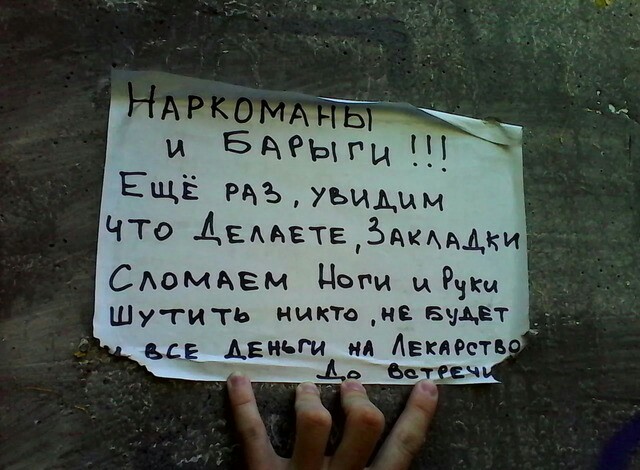 НАРКОМАНЫ
и БАРЫГИ !!!
ЕЩЁ РАЗ, УВИДИМ
ЧТО ДЕЛАЕТЕ, ЗАКЛАДКИ
СЛОМАЕМ НОГИ И РУКИ
ШУТИТЬ НИКТО, НЕ БУДЕТ
и ВСЕ ДЕНЬГИ НА ЛЕКАРСТВО
ДО ВСТРЕЧИ